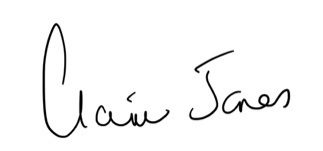 Claire Jones